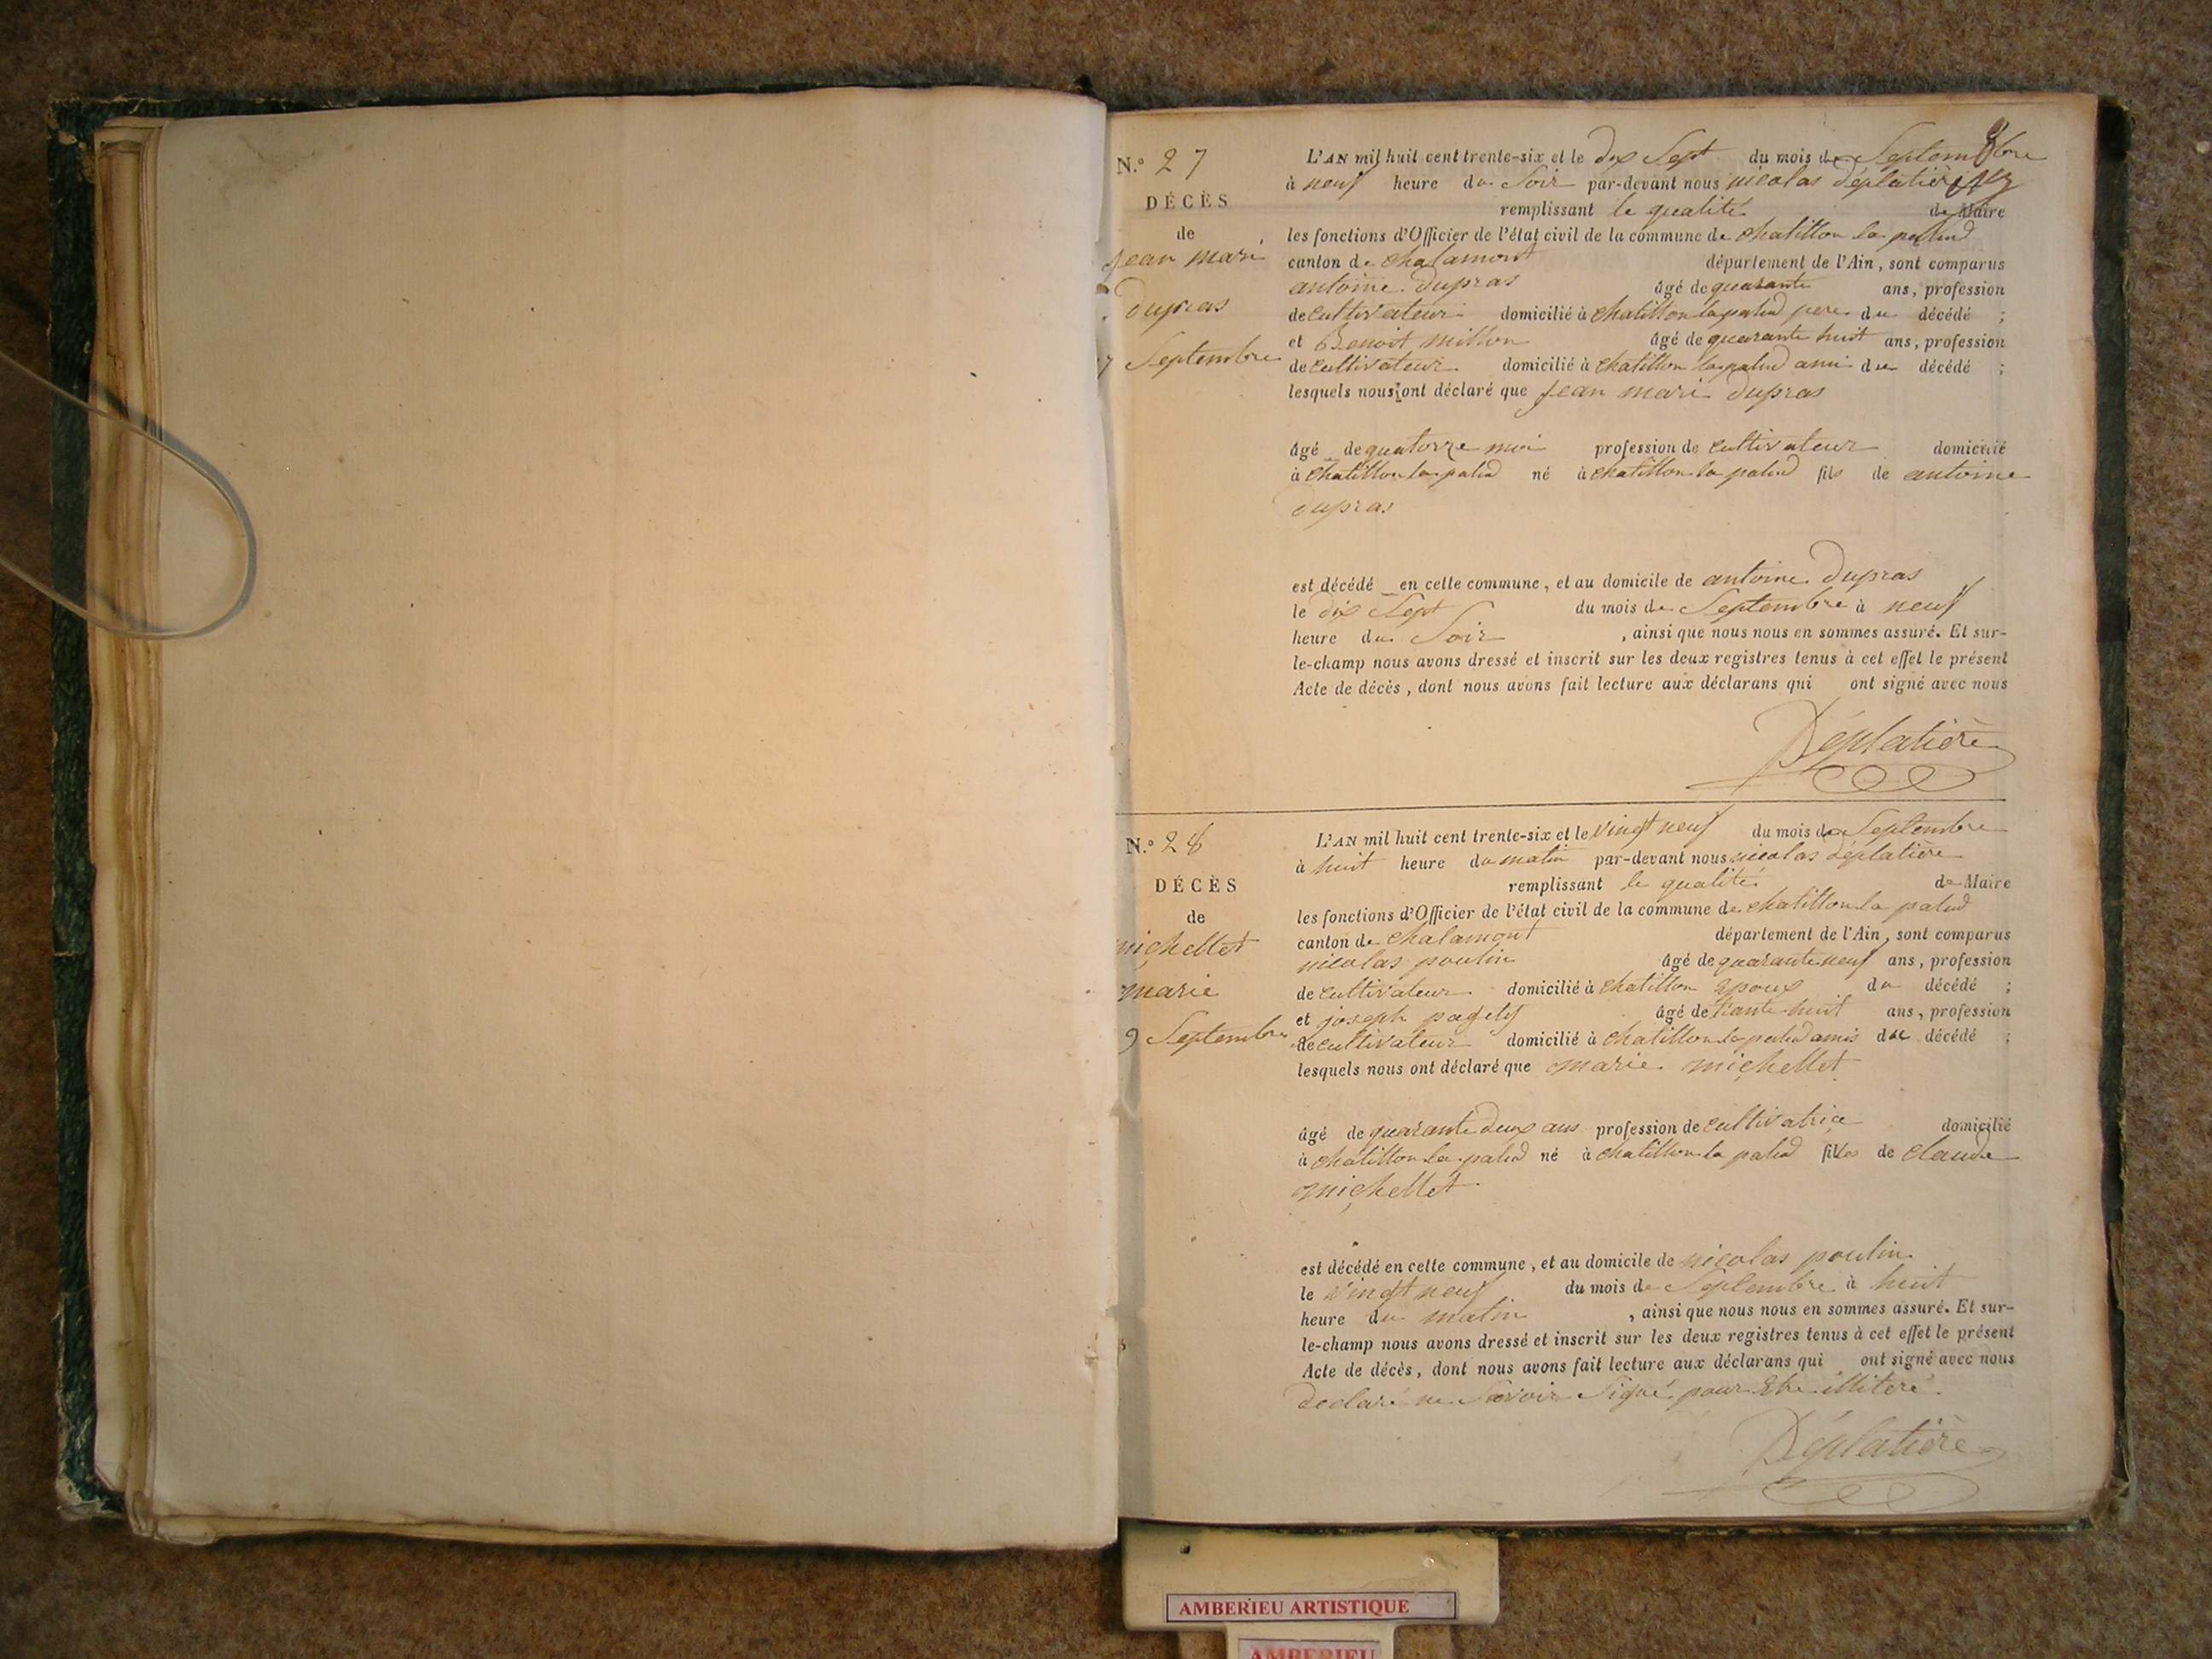 N.º 27
DÉCÈS
de
Jean mari
Dupras
7 Septembre
L'AN mil huit cent trente-six et le dix Sept du mois de Septembre
à neuf heure du Soir par-devant nous nicolas Déplatière
remplissant le qualité de Maire
les fonctions d'Officier de l'état civil de la commune de chatillon la palud
canton de chalamont département de l'Ain, sont comparus
antoine Dupras âgé de quarante ans, profession
de cultivateur domicilié à chatillon la palud pere du décédé ;
et Benoit millon âgé de quarante huit ans, profession
de cultivateur domicilié à chatillon la palud ami du décédé ;
lesquels nous ont déclaré que Jean mari Dupras
âgé de quatorze moi profession de cultivateur domicilié
à chatillon la palud né à chatillon la palud fils de antoine
Dupras
est décédé en cette commune, et au domicile de antoine Dupras
le dix Sept du mois de Septembre à neuf
heure du Soir , ainsi que nous nous en sommes assuré. Et sur-
le-champ nous avons dressé et inscrit sur les deux registres tenus à cet effet le présent
Acte de décès, dont nous avons fait lecture aux déclarans qui ont signé avec nous
Déplatière
N.º 28
DÉCÈS
de
michellet
marie
9 Septembre
L'AN mil huit cent trente-six et le vingt neuf du mois de Septembre
à huit heure du matin par-devant nous nicolas Déplatière
remplissant le qualité de Maire
les fonctions d'Officier de l'état civil de la commune de chatillon la palud
canton de chalamont département de l'Ain, sont comparus
nicolas poulin âgé de quarante neuf ans, profession
de cultivateur domicilié à chatillon Epoux du décédé ;
et joseph âgé de huit ans, profession
de cultivateur domicilié à chatillon la palud amis du décédé ;
lesquels nous ont déclaré que marie michellet
âgé de quarante deux ans profession de cultivatrice domicilié
à chatillon la palud né à chatillon la palud filles de claude
michellet
est décédé en cette commune, et au domicile de nicolas poulin
le vingt neuf du mois de Septembre à huit
heure du matin , ainsi que nous nous en sommes assuré. Et sur-
le-champ nous avons dressé et inscrit sur les deux registres tenus à cet effet le présent
Acte de décès, dont nous avons fait lecture aux déclarans qui ont signé avec nous
declaré ne Savoir Signé pour Etre illiteré.
Déplatière
AMBERIEU ARTISTIQUE
AMBERIEU